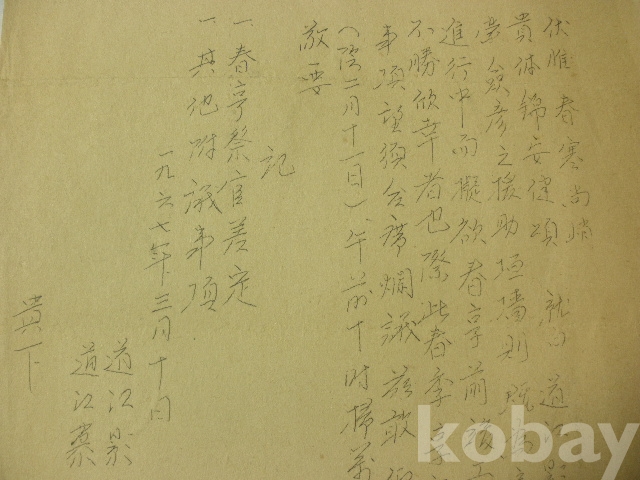 伏惟春寒尚峭
貴体錦安健頌 就 道江影
蒙僉彦之援助垣墻則既為
進行中而擬欲春享前竣工
不勝欣幸者也際此春季享
事項望須合席爛議玆敢
(陰二月十一日)、午前十时掃萬
敬要
記
一 春亨祭官差定
一 其他附議事項
一九六七年三月十日
道江影
道江蔂
貴下
kobay